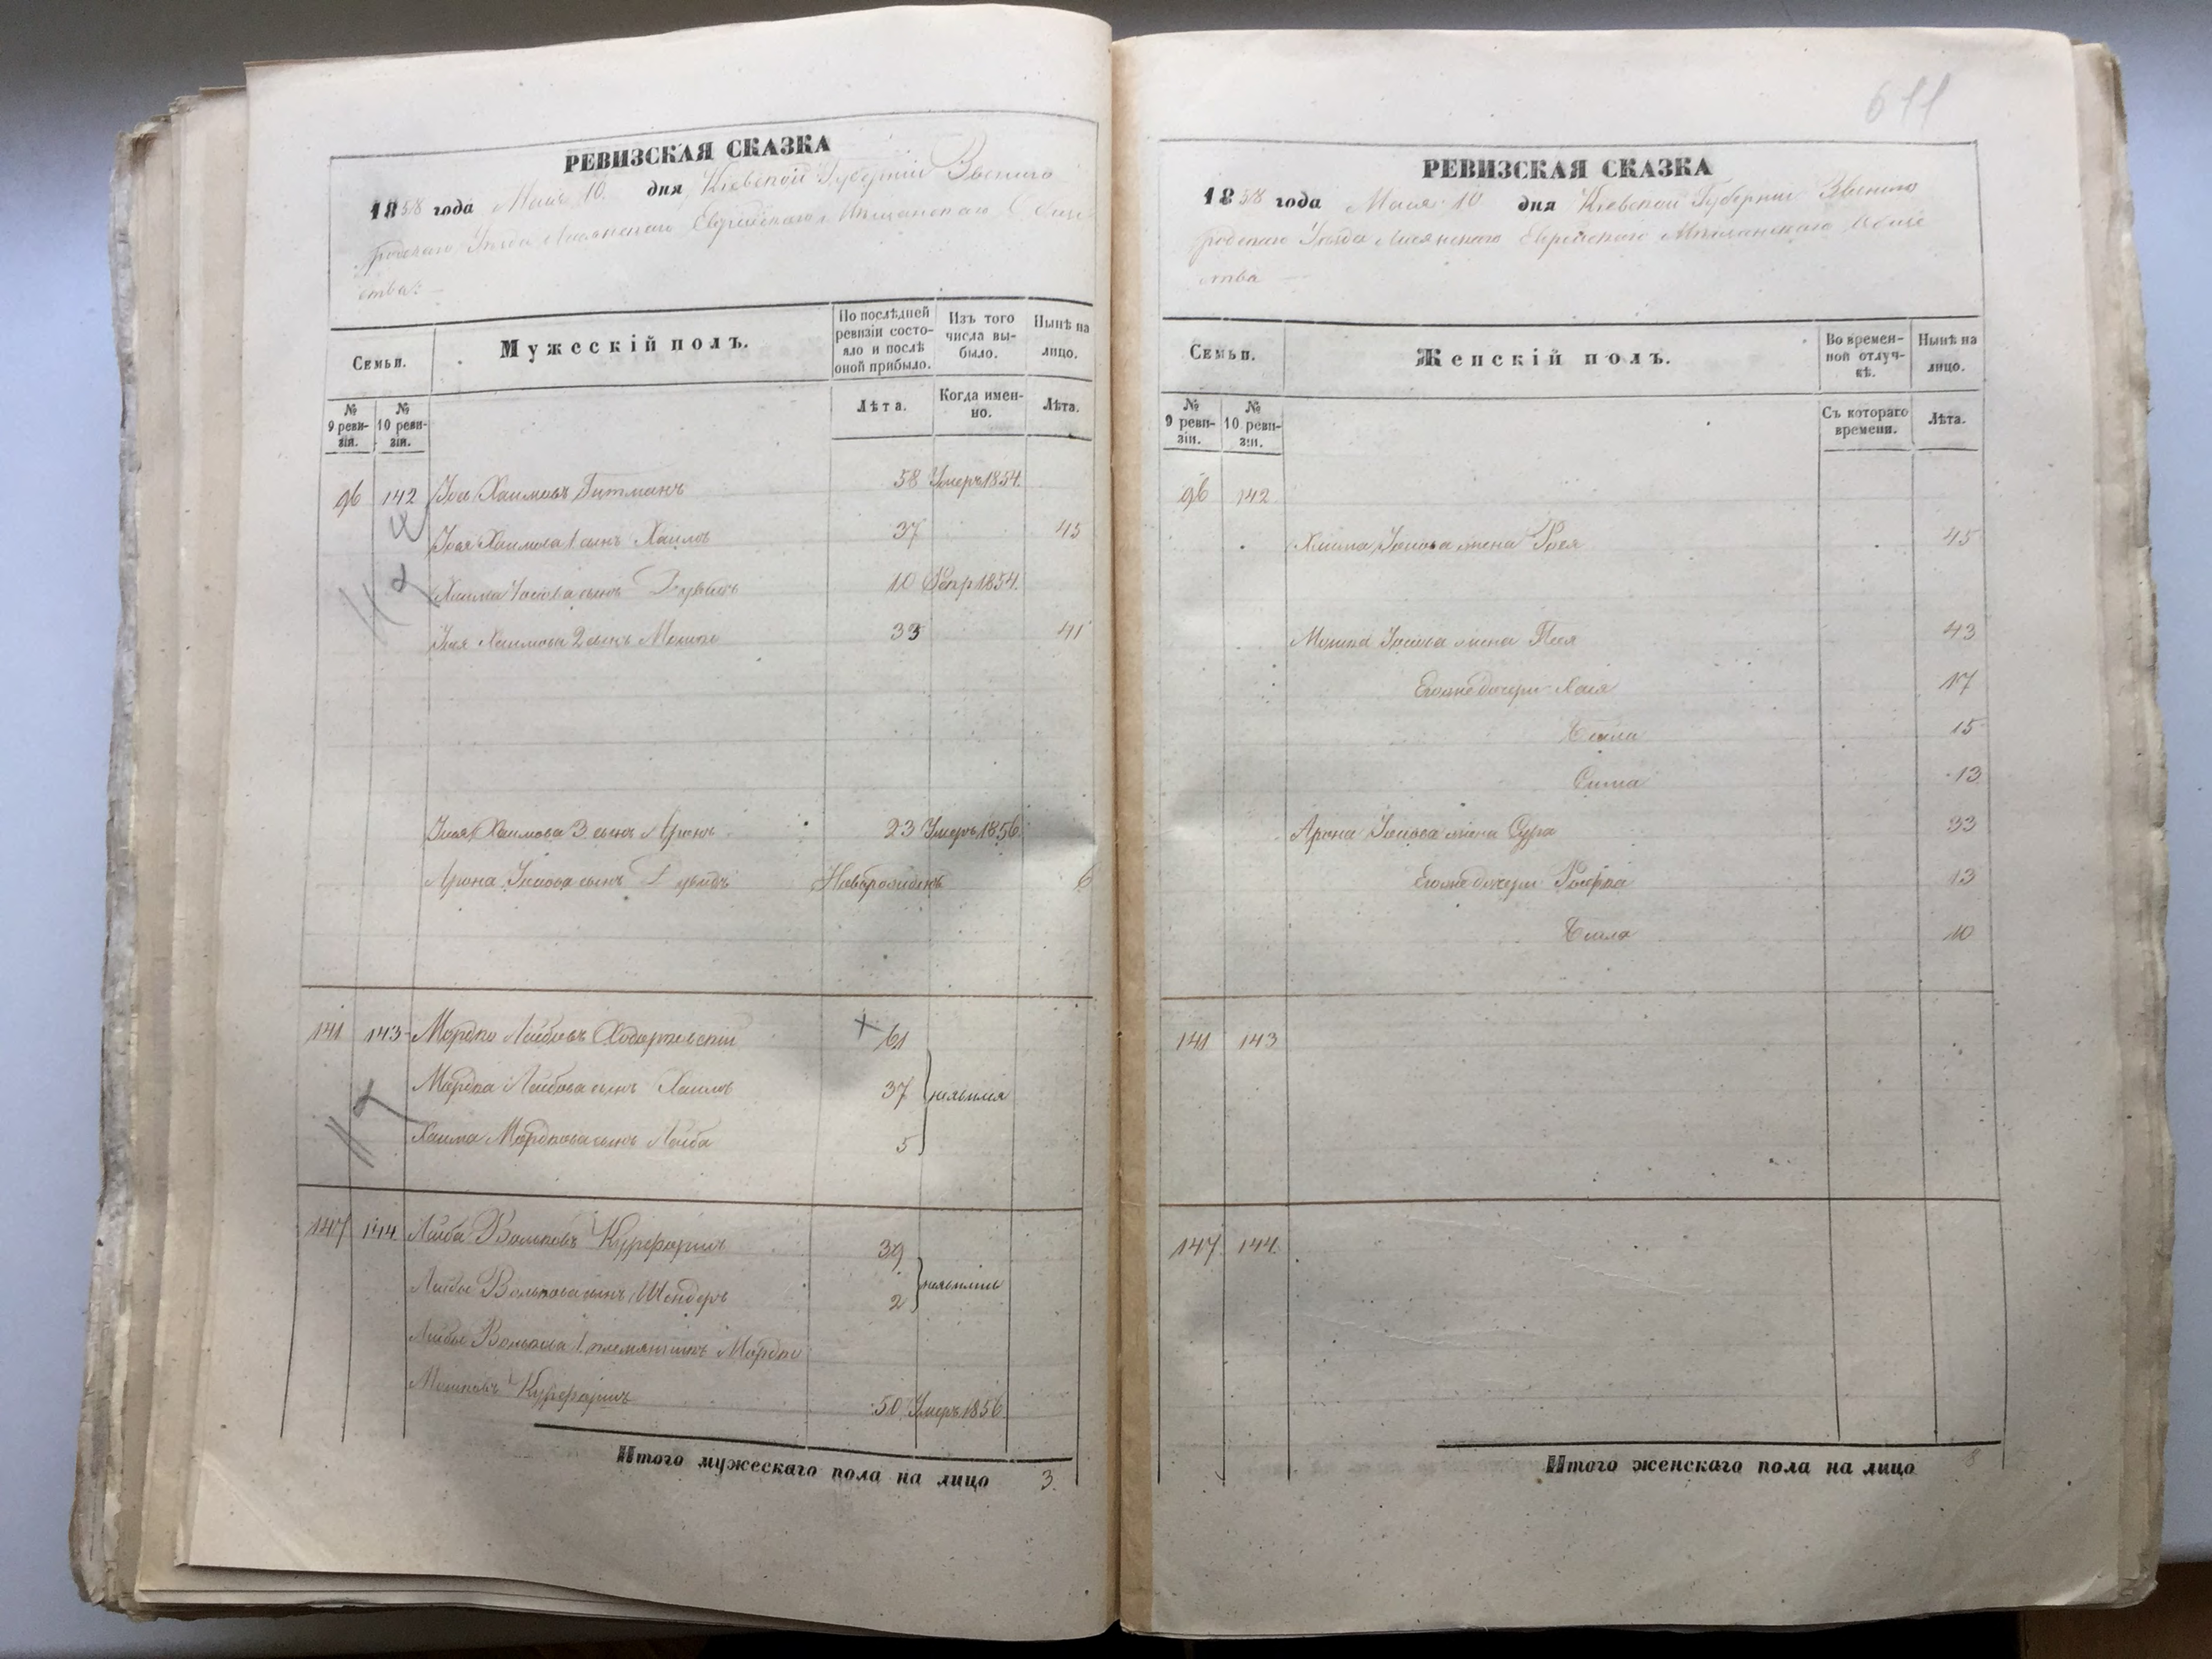 РЕВИЗСКАЯ СКАЗКА
1858 года Мая 10. дня Кіевской Губерніи Звениго
родскаго Уѣзда Лисянскаго Еврейскаго Мѣщанскаго Обще
ства:
Семьи.
Мужескій полъ.
По послѣдней ревизіи состояло и послѣ оной прибыло.
Изъ того числа выбыло.
Нынѣ на лицо.
№ 9 ревизіи.
№ 10 ревизіи.
Лѣта.
Когда именно.
Лѣта.
96 142 Хаимовъ Гитманъ 58 Умеръ 1854.
Хаимова 1 сынъ Хаимъ 37 45
Хаима сынъ 10 1854.
Хаимова 2 сынъ Мошко 33 41
Хаимова 3 сынъ Аронъ 23 Умеръ 1856
Арона сынъ Новорожденъ 6
141 143 Мордко Лейбовъ 61
Мордка Лейбова сынъ Хаимъ 37
Хаима Мордкова сынъ Лейба 5
147 144 Лейба Вольковъ 39
Лейбы Волькова сынъ Шендеръ 2
Лейбы Волькова 1 племянникъ Мордко
Мошковъ 50 Умеръ 1856
Итого мужескаго пола на лицо 3.
611
РЕВИЗСКАЯ СКАЗКА
1858 года Мая 10 дня Кіевской Губерніи Звениго
родскаго Уѣзда Лисянскаго Еврейскаго Мѣщанскаго Обще
ства
Семьи.
Женскій полъ.
Во временной отлучкѣ.
Нынѣ на лицо.
№ 9 ревизіи.
№ 10 ревизіи.
Съ котораго времени.
Лѣта.
96 142
Хаима жена 45
Мошка жена 43
Егоже дочери Хая 17
Бейла 15
Сима 13
Арона жена Сура 33
Егоже дочери 13
Бейла 10
141 143
147 144.
Итого женскаго пола на лицо 8